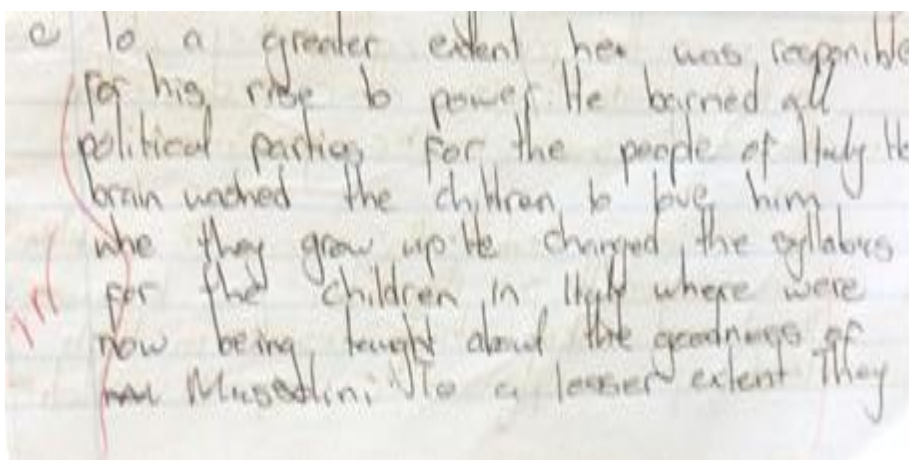 c To a greater extent he was responible
for his rise to power. He banned all
political parties for the people of Italy He
brain washed the children to love him
whe they grow up He changed the syllabus
for the children in Italy where were
now being taught about the goodness of
Mussolini To a lesser extent They